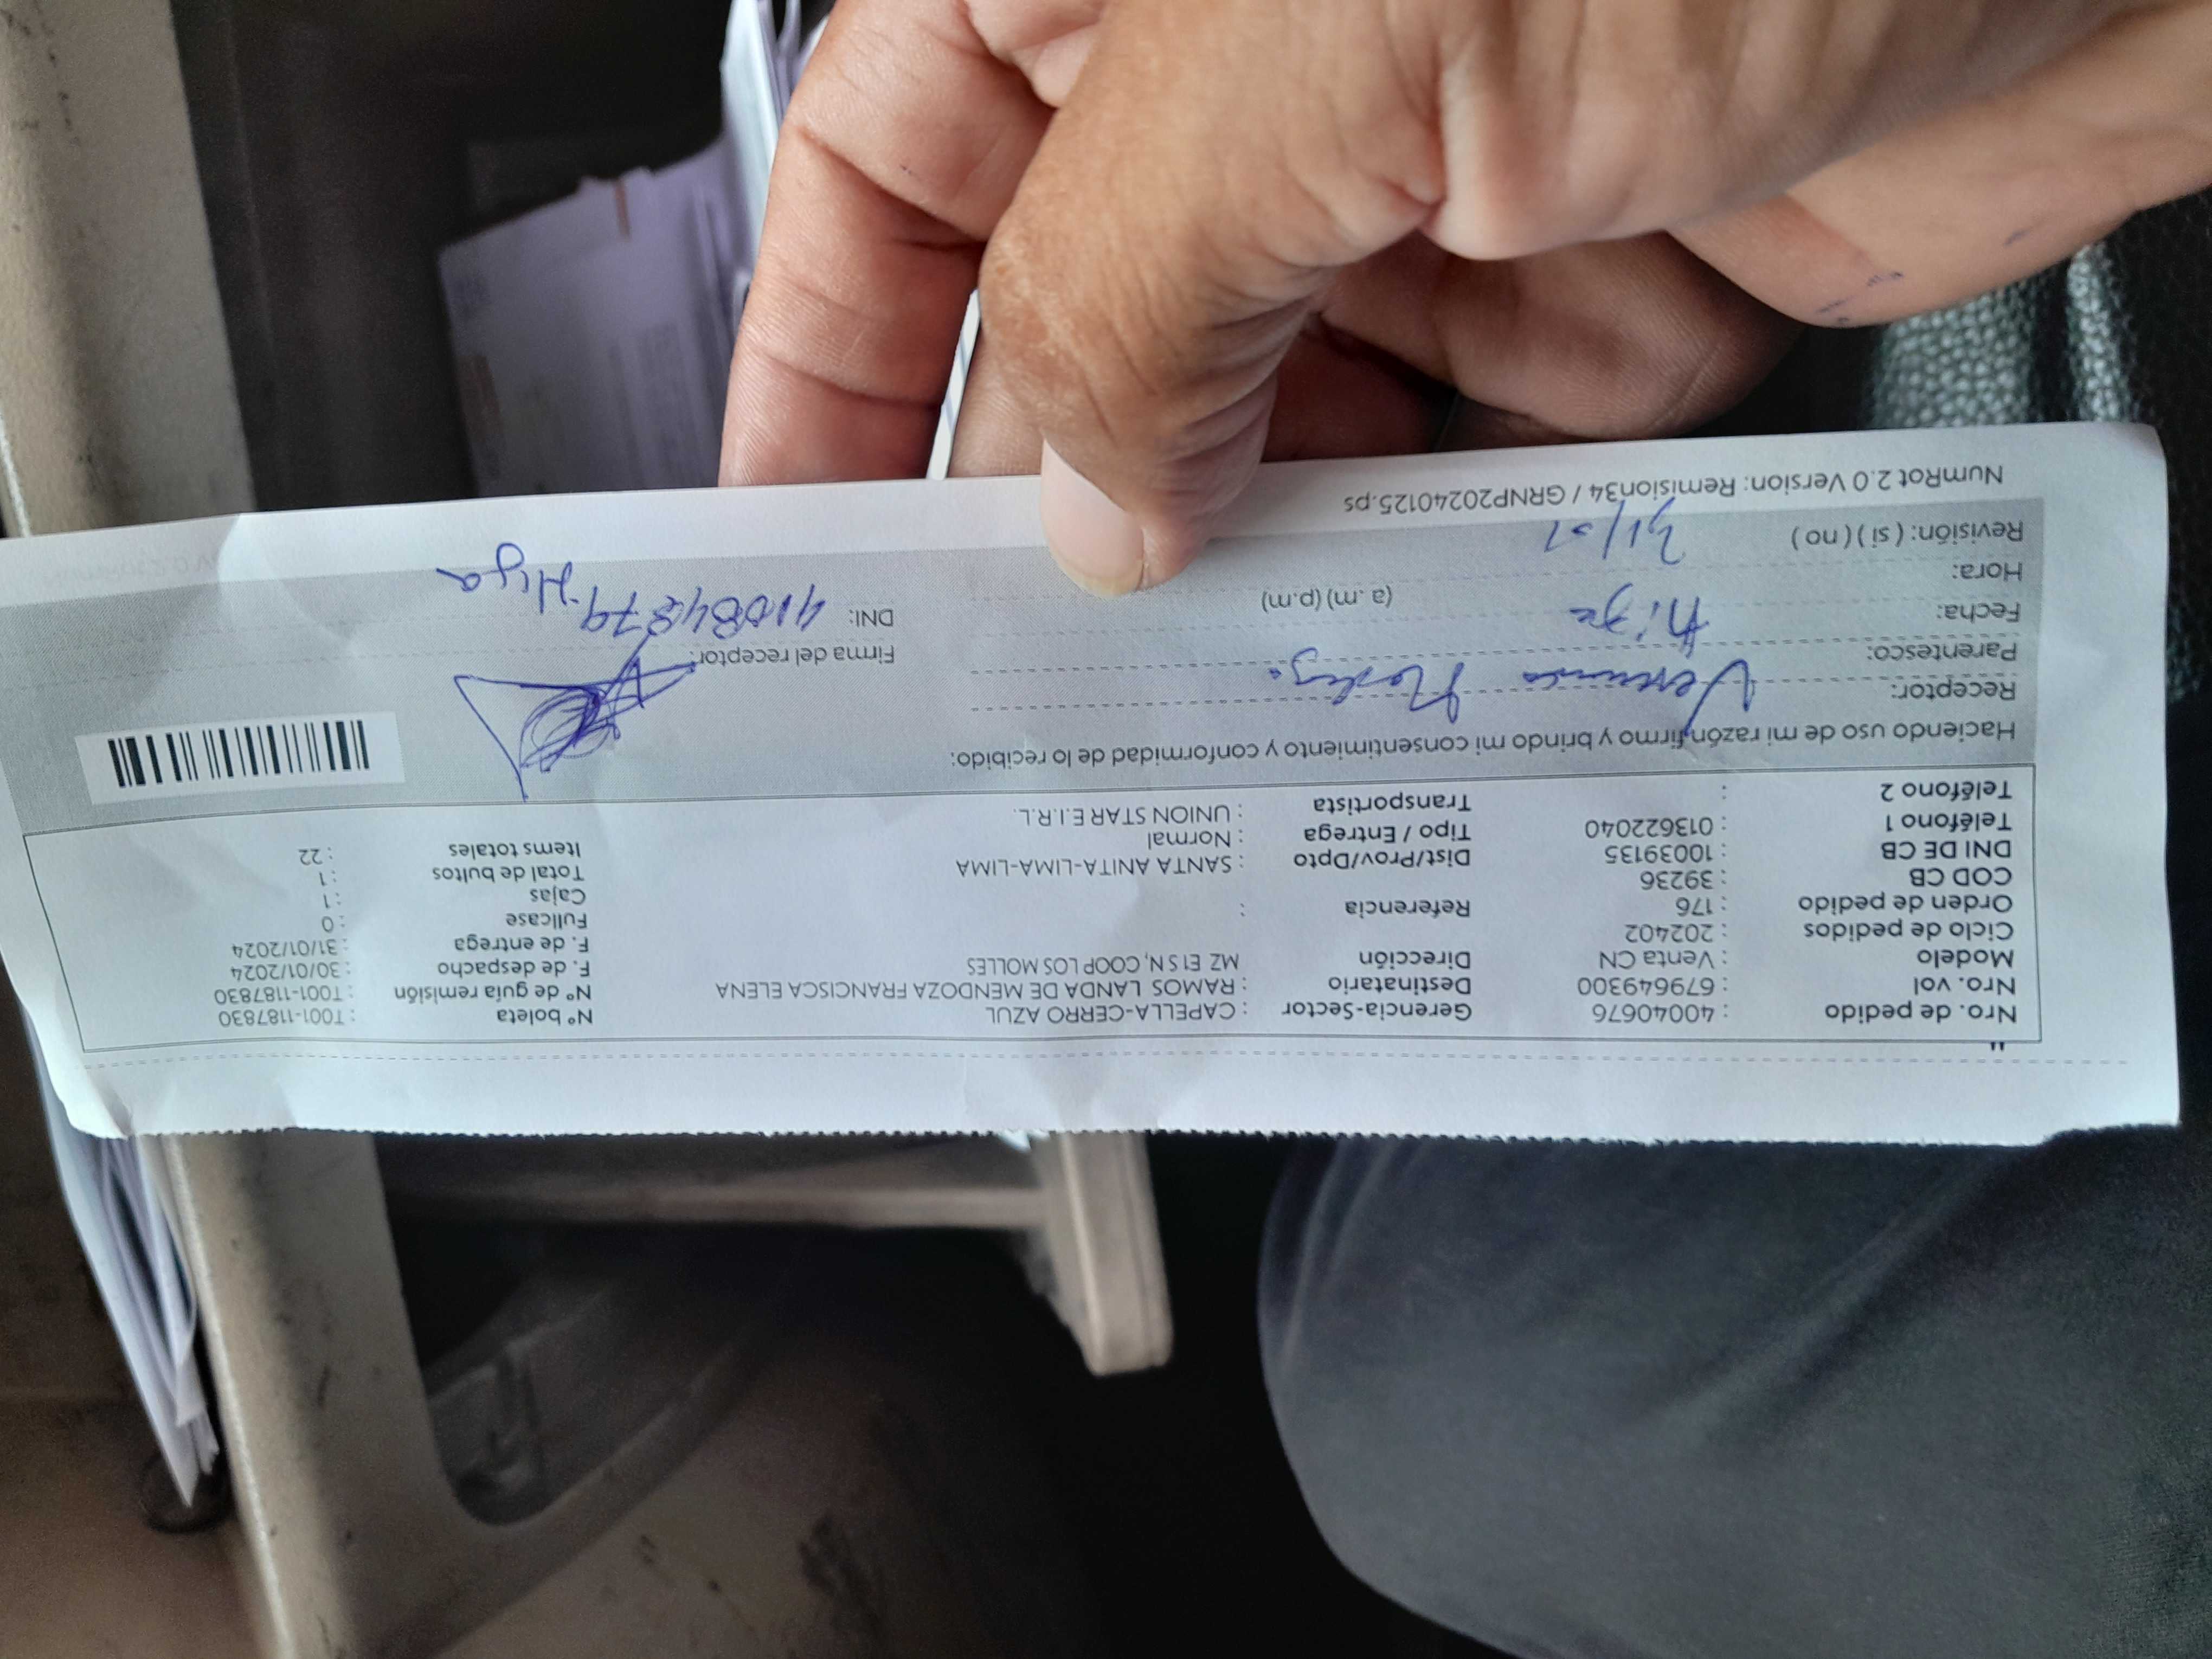 Nro. de pedido : 40040676 Gerencia-Sector : CAPELLA-CERRO AZUL Nº boleta : T001-1187830
Nro. vol : 679649300 Destinatario : RAMOS LANDA DE MENDOZA FRANCISCA ELENA Nº de guía remisión : T001-1187830
Modelo : Venta CN Dirección MZ E1 S N, COOP LOS MOLLES F. de despacho : 30/01/2024
Ciclo de pedidos : 202402 F. de entrega : 31/01/2024
Orden de pedido : 176 Referencia : Fullcase : 0
COD CB : 39236 Cajas : 1
DNI DE CB : 10039135 Dist/Prov/Dpto : SANTA ANITA-LIMA-LIMA Total de bultos : 1
Teléfono 1 : 013622040 Tipo / Entrega : Normal Items totales : 22
Teléfono 2 : Transportista : UNION STAR E.I.R.L.
Haciendo uso de mi razón, firmo y brindo mi consentimiento y conformidad de lo recibido:
Receptor:
Parentesco: Firma del receptor:
Fecha: Hija DNI: Hija
Hora: (a.m) (p.m)
Revisión: ( si ) ( no ) 31/01
NumRot 2.0 Version: Remision34 / GRNP20240125.ps